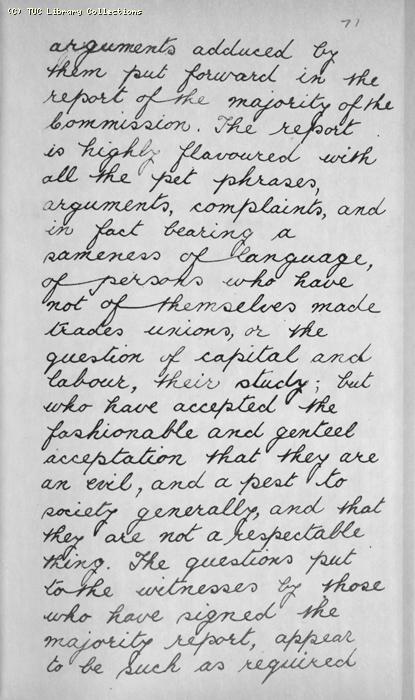 (C) TUC Library Collections
71
arguments adduced by
them put forward in the
report of the majority of the
Commission. The report
is highly flavoured with
all the pet phrases,
arguments, complaints, and
in fact bearing a
sameness of language,
of persons who have
not of themselves made
trades unions, or the
question of capital and
labour, their study; but
who have accepted the
fashionable and genteel
acceptation that they are
an evil, and a pest to
society generally, and that
they are not a respectable
thing. The questions put
to the witnesses by those
who have signed the
majority report, appear
to be such as required